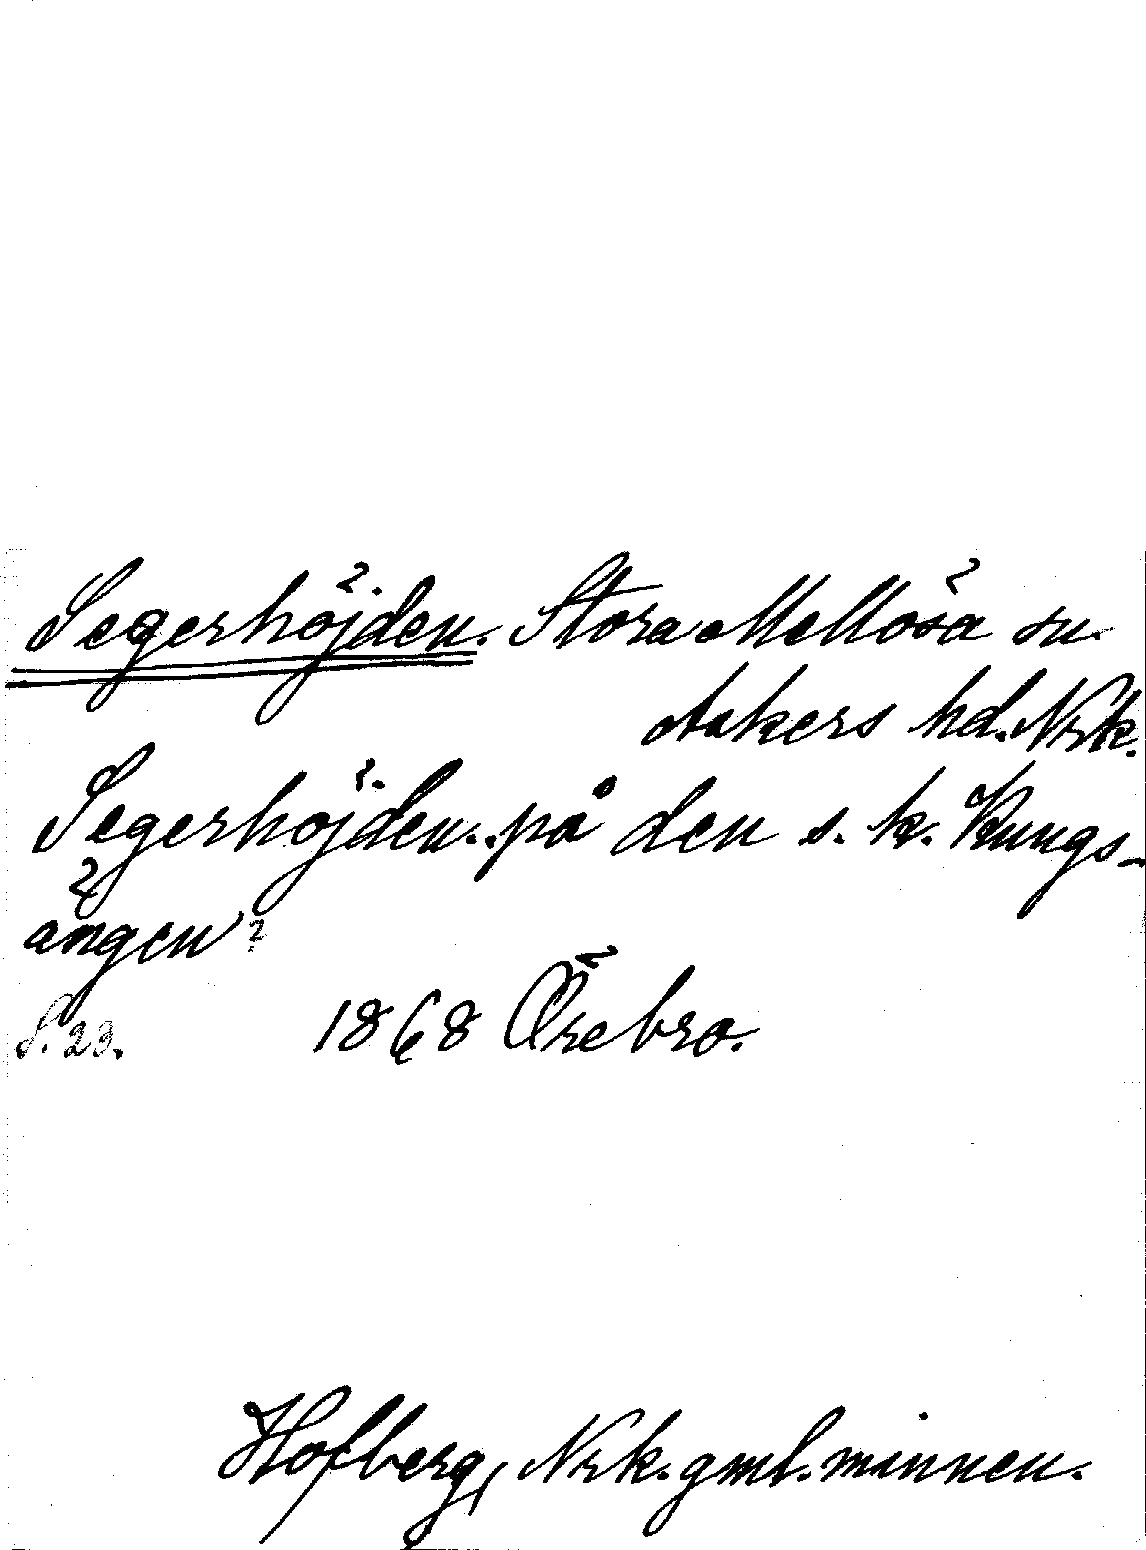 Segerhöjden. Stora Mellösa sn.
Askers hd. Nrk.
Segerhöjden.. på den s. k. Kungs-
ängen?
S. 23. 1868 Örebro.
Hofberg, Nrk. gml. minnen.